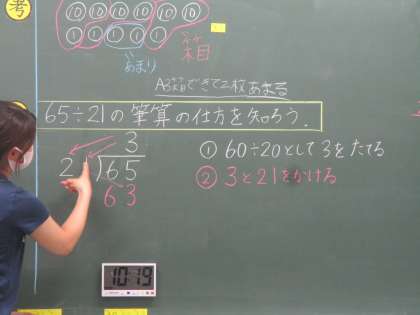 考
⑩ ⑩ ⑩ ⑩ ⑩ ⑩
① ① ① ① ①
あまり
箱
できて2枚あまる
65÷21の筆算の仕方を知ろう.
3
21)65
63
① 60÷20として3をたてる
② 3と21をかける
10:19